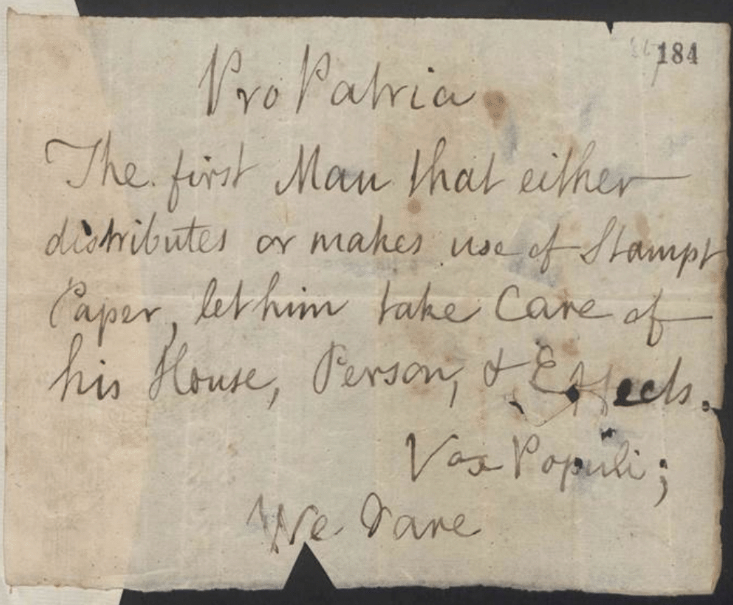 184
Pro Patria
The first Man that either
distributes or makes use of Stampt
Paper, let him take Care of
his House, Person, & Effects.
Vox Populi;
We Dare